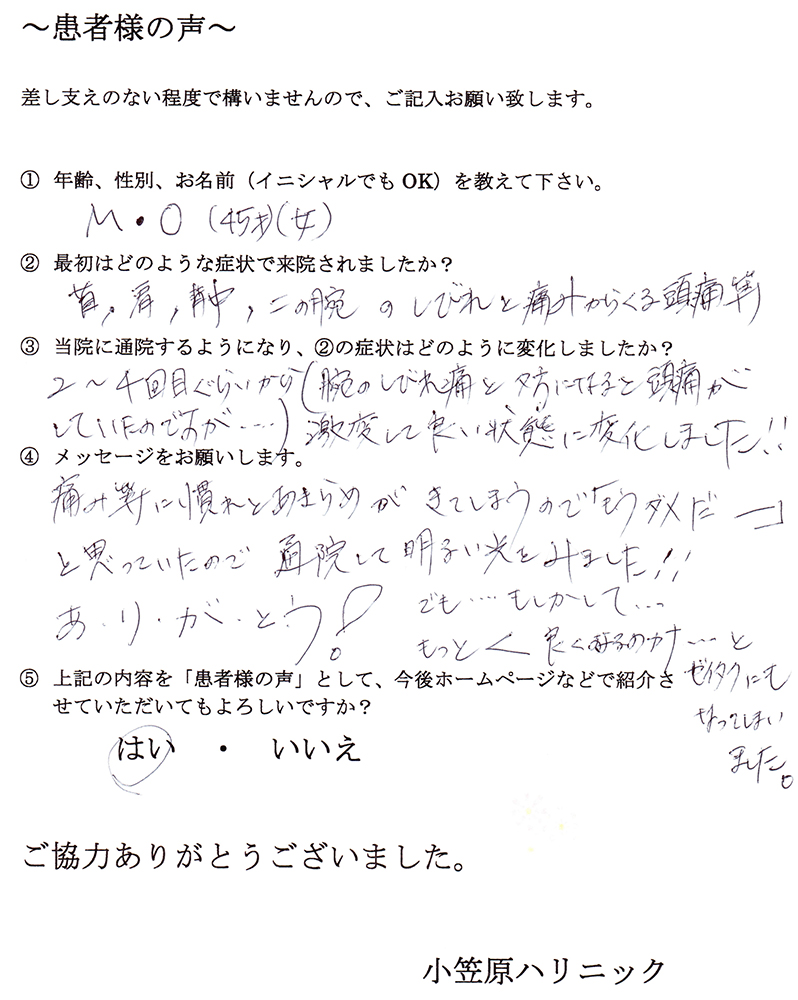 ～患者様の声～
差し支えのない程度で構いませんので、ご記入お願い致します。
① 年齢、性別、お名前（イニシャルでも OK）を教えて下さい。
M・O (45才)(女)
② 最初はどのような症状で来院されましたか？
首,肩,背中,二の腕のしびれと痛みからくる頭痛等
③ 当院に通院するようになり、②の症状はどのように変化しましたか？
2～4回目ぐらいから(腕のしびれ痛と夕方になると頭痛が
していたのですが……)激変して良い状態に変化しました!!
④ メッセージをお願いします。
痛み等に慣れとあきらめがきてしまうので「もうダメだー」
と思っていたので通院して明るい光をみました!!
あ・り・が・とう!
でも…もしかして…
もっと〱良くなるのカナ…と
ゼイタクにも
なってしまい
ました。
⑤ 上記の内容を「患者様の声」として、今後ホームページなどで紹介さ
せていただいてもよろしいですか？
はい ・ いいえ
ご協力ありがとうございました。
小笠原ハリニック